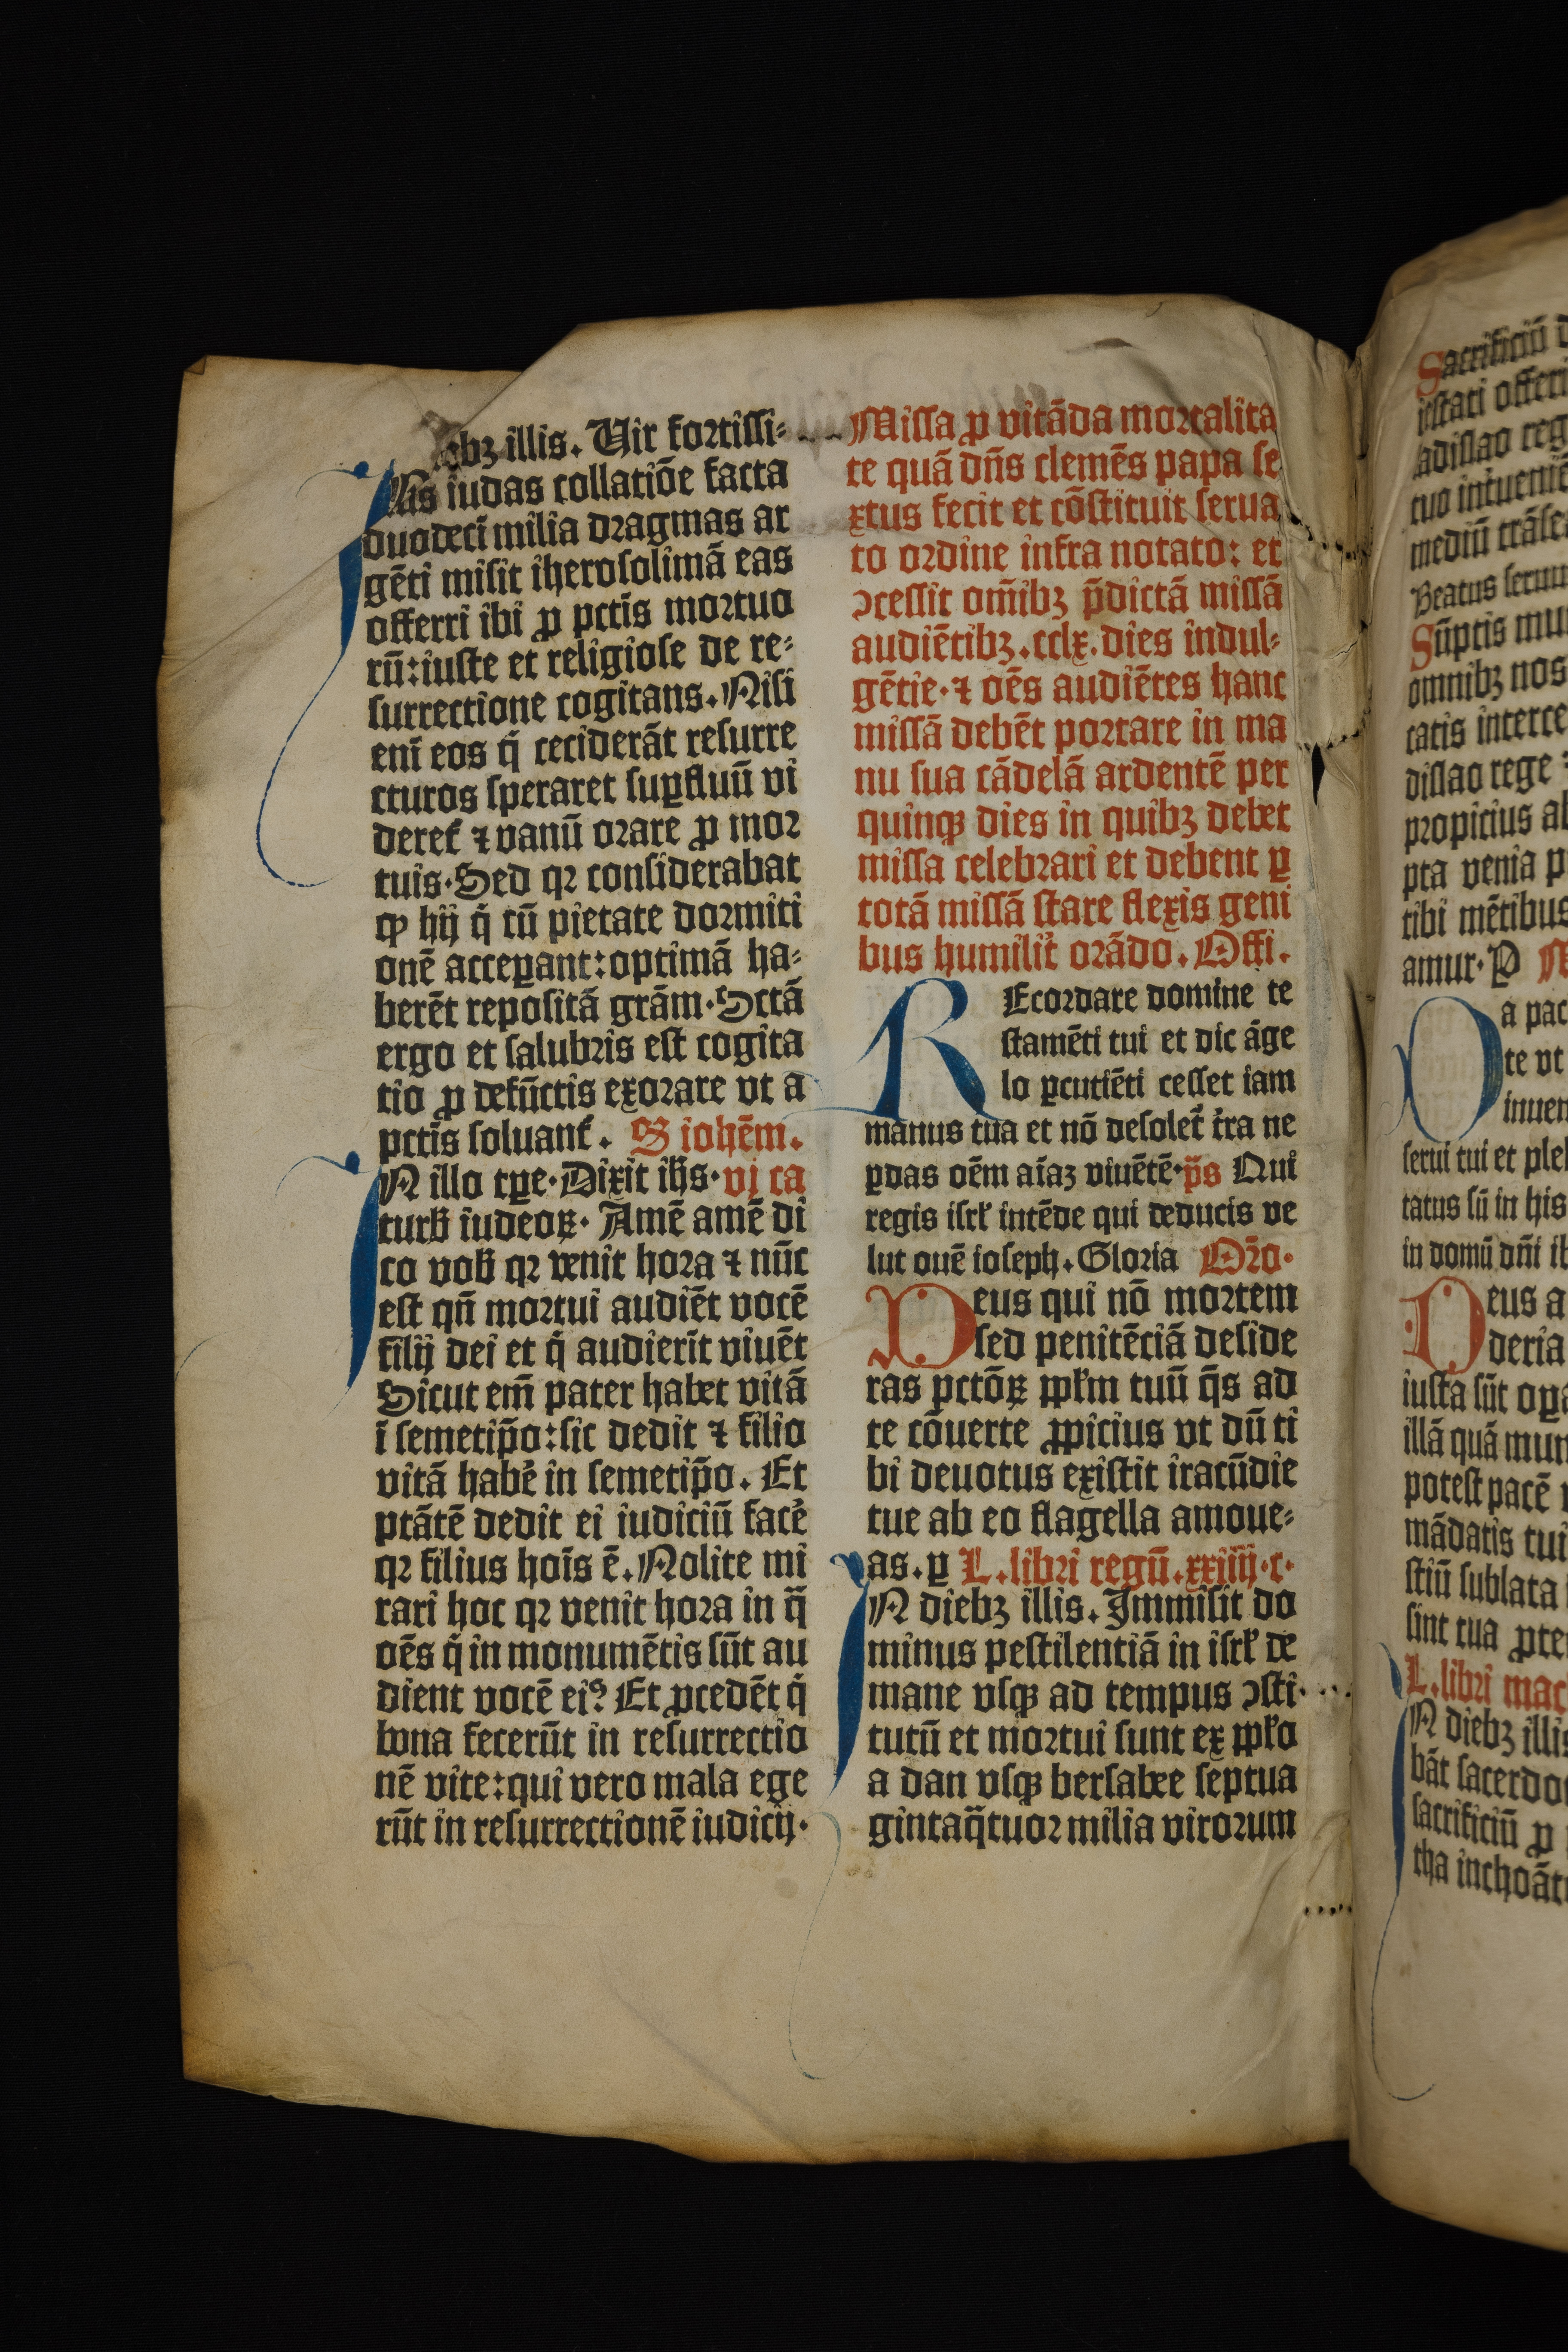 ebꝫ illis. Vir fortiſſi⸗
mꝰ iudas collatiōe facta
duodecī milia dragmas ar
gēti miſit iheroſolimā eas
offerri ibi ꝓ pctīs mortuo
rū: iuſte et religioſe de re⸗
ſurrectione cogitans. Niſi
enī eos q̄ ceciderāt reſurre
cturos ſperaret ſuꝑfluū vi
deret̄ ⁊ vanū orare ꝓ mor
tuis. Sed qꝛ conſiderabat
ꝙ hij q̄ cū pietate dormiti
onē acceꝑant: optimā ha⸗
berēt repoſitā grām. Sctā
ergo et ſalubris eſt cogita
tio ꝓ defūctis exorare vt a
pctīs ſoluant̄. S iohēm.
IN illo tꝑe. Dixit ih̄s. vj ca
turb̄ iudeoꝝ. Amē amē di
co vob̄ qꝛ venit hora ⁊ nūc
eſt qn̄ mortui audiēt vocē
filij dei et q̄ audierīt viuēt
Sicut em̄ pater habet vitā
ī ſemetip̄o: ſic dedit ⁊ filio
vitā habe᷑ in ſemetip̄o. Et
ptātē dedit ei iudiciū face᷑
qꝛ filius hoīs ē. Nolite mi
rari hoc qꝛ venit hora in q̄
oēs q̄ in monumētis ſūt au
dient vocē eiꝰ Et ꝓcedēt q̄
bona fecerūt in reſurrectio
nē vite: qui vero mala ege
rūt in reſurrectionē iudicij.
Miſſa ꝓ vitāda mortalita
te quā dn̄s clemēs papa ſe
xtus fecit et cōſtituit ſerua
to ordine infra notato: et
ↄceſſit om̄ibꝫ p̄dictā miſſā
audiētibꝫ. cclx. dies indul⸗
gētie. ⁊ oēs audiētes hanc
miſſā debēt portare in ma
nu ſua cādelā ardentē per
quinqꝫ dies in quibꝫ debet
miſſa celebrari et debent ꝑ
totā miſſā ſtare flexis geni
bus humilit᷑ orādo. Offi.
REcordare domine te
ſtamēti tui et dic āge
lo ꝑcutiēti ceſſet iam
manus tua et nō deſolet᷑ t᷑ra ne
ꝑdas oēm aīaꝫ viuētē. p̄s Qui
regis iſrl̄ intēde qui deducis ve
lut ouē ioſeph. Gloria Oꝛ̄o.
Deus qui nō mortem
ſed penitētiā deſide
ras pctōꝝ ꝓpl̄m tuū q̄s ad
te cōuerte ꝓpicius vt dū ti
bi deuotus exiſtit iracūdie
tue ab eo flagella amoue⸗
as. ꝑ L. libri regū. xxiiij. c.
IN diebꝫ illis. Immiſit do
minus peſtilentiā in iſrl̄ de
mane vſqꝫ ad tempus ↄſti
tutū et mortui ſunt ex ꝓpl̄o
a dan vſqꝫ berſabee ſeptua
gintaq̄tuor milia virorum
Sacrificiū
ieſtati offeri
adiſlao reg
tuo intueniē
mediū trāſe
Beatus ſeruu
Sūptis mu
omnibꝫ nos
catis interce
diſlao rege
propicius
pta venia
tibi mētibus
amur. P
Da pac
te vt
inuen
ſerui tui et ple
tatus ſū in his
in domū dn̄i
Deus a
deria
iuſta ſūt oꝑa
illā quā mun
poteſt pacē
mādatis tui
ſtiū ſublata
ſint tua ꝓte
L. libri mac
IN diebꝫ illis
bāt ſacerdo
ſacrificiū ꝓ
tha inchoāt